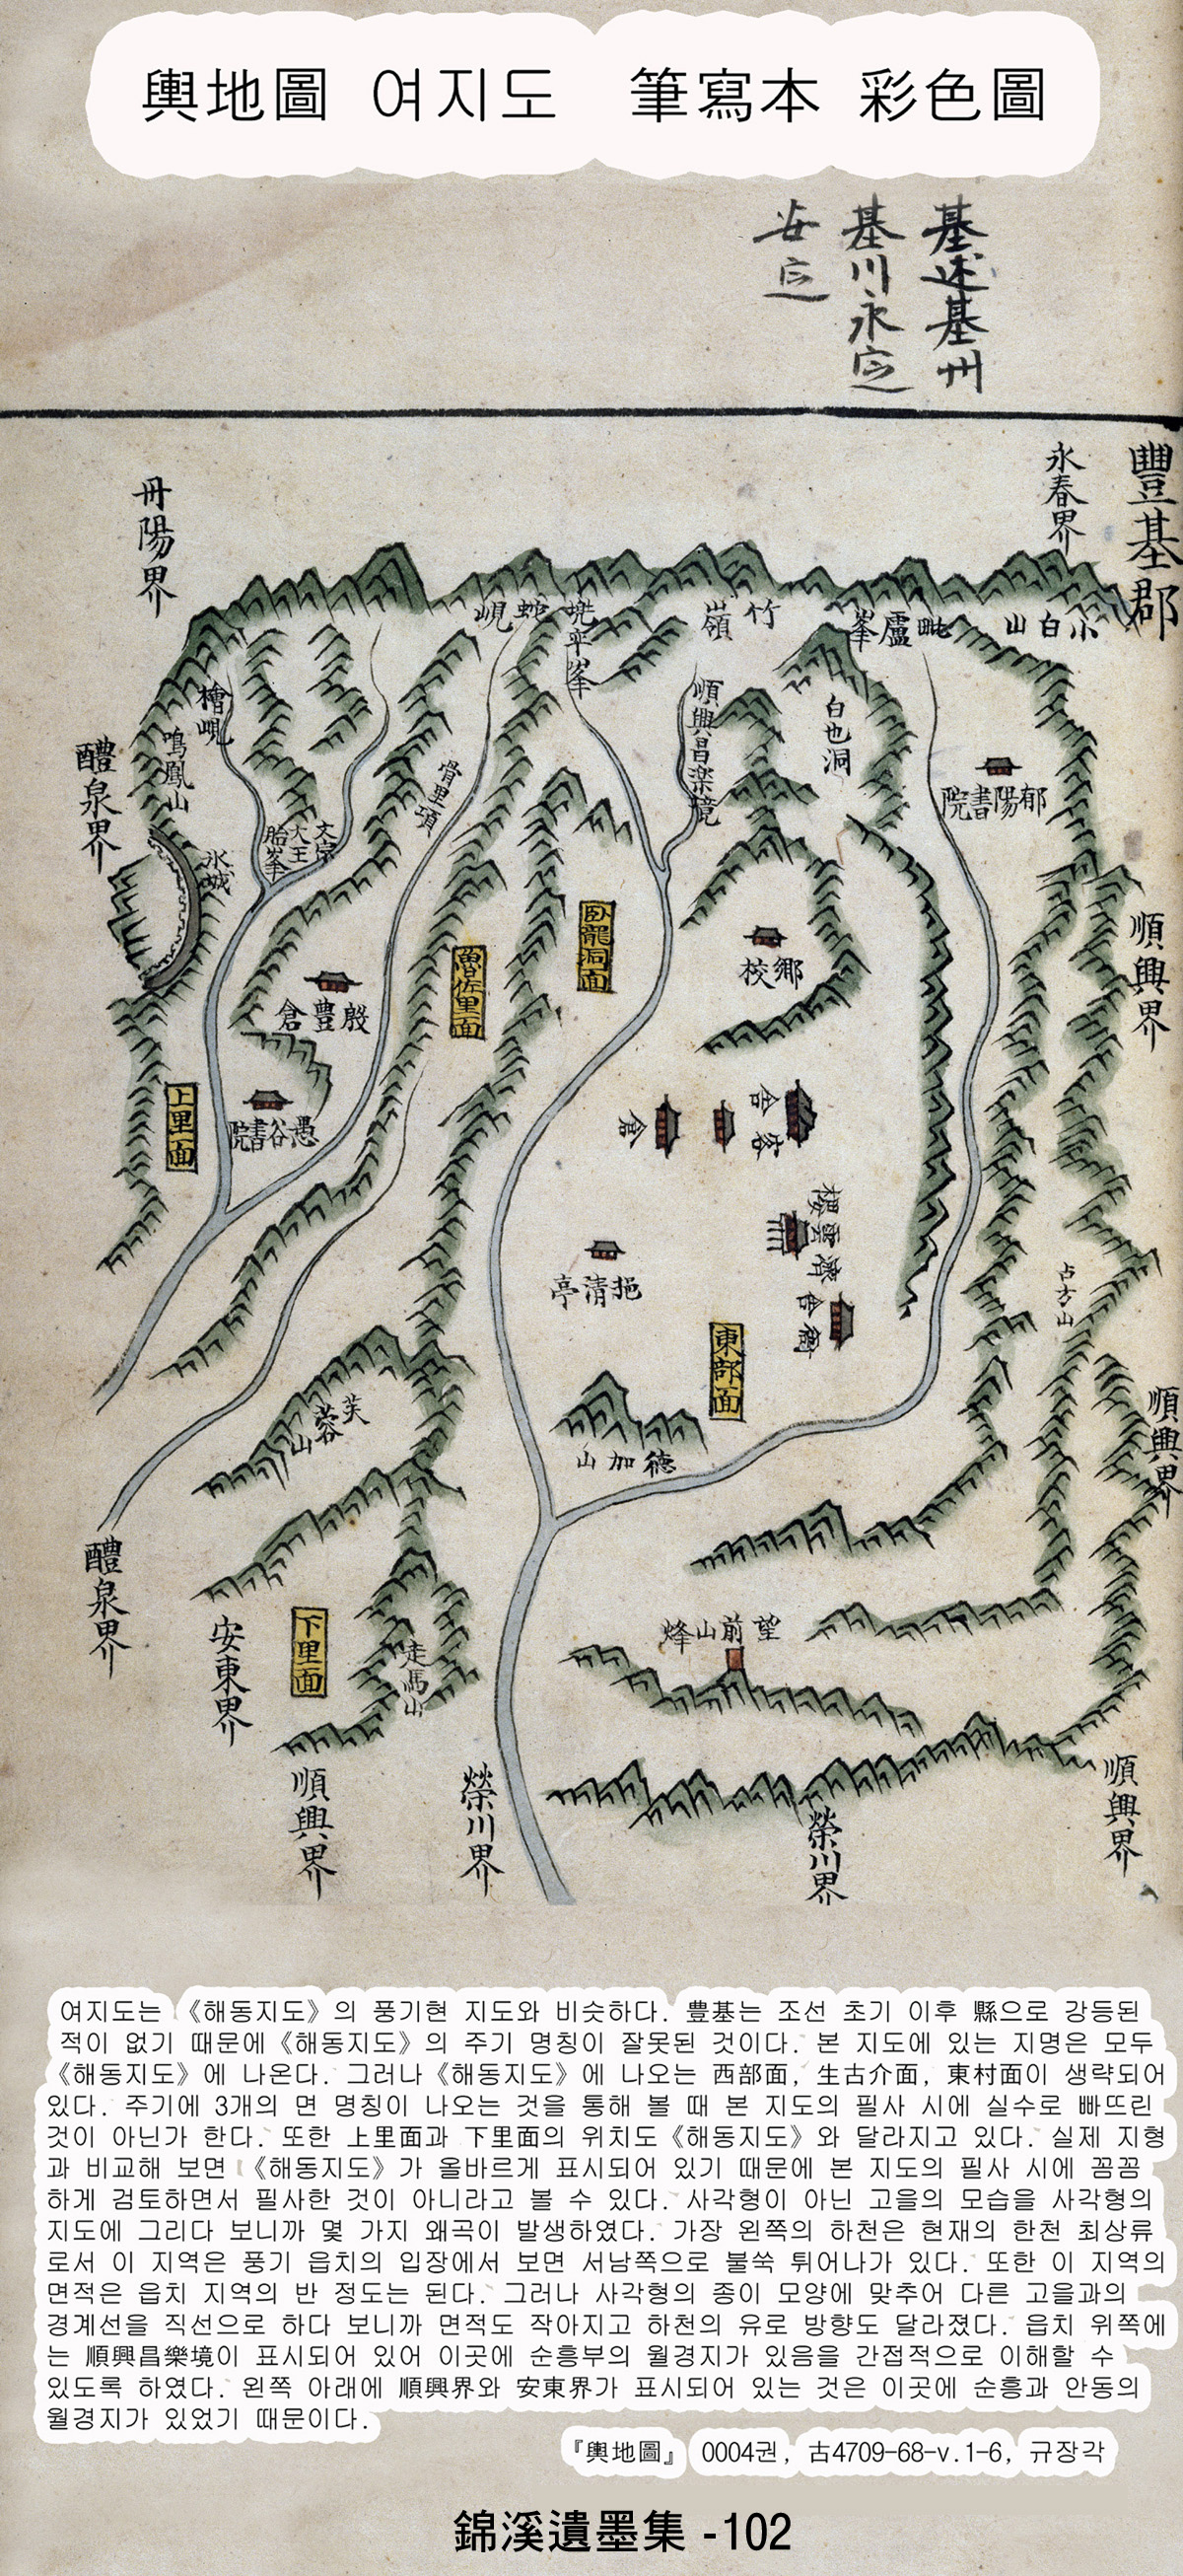 輿地圖 여지도 筆寫本 彩色圖
基
基州
基川永定
安定
豐基郡
永春界
丹陽界
小白山
毗盧峯
竹嶺
兠率峯
蛇峴
檜峴
鳴鳳山
醴泉界
順興昌楽境
白也洞
骨里項
郁陽書院
文宗
大王
胎峯
氷城
臥龍洞面
魯佐里面
順興界
鄉校
殷豊倉
上里面
愚谷書院
客舍
倉
濟雲樓
衙舍
挹清亭
東部面
占方山
德加山
芙蓉山
順興界
醴泉界
安東界
下里面
走馬山
望前山烽
順興界
榮川界
榮川界
順興界
여지도는 《해동지도》의 풍기현 지도와 비슷하다. 豊基는 조선 초기 이후 縣으로 강등된
적이 없기 때문에《해동지도》의 주기 명칭이 잘못된 것이다. 본 지도에 있는 지명은 모두
《해동지도》에 나온다. 그러나《해동지도》에 나오는 西部面, 生古介面, 東村面이 생략되어
있다. 주기에 3개의 면 명칭이 나오는 것을 통해 볼 때 본 지도의 필사 시에 실수로 빠뜨린
것이 아닌가 한다. 또한 上里面과 下里面의 위치도《해동지도》와 달라지고 있다. 실제 지형
과 비교해 보면 《해동지도》가 올바르게 표시되어 있기 때문에 본 지도의 필사 시에 꼼꼼
하게 검토하면서 필사한 것이 아니라고 볼 수 있다. 사각형이 아닌 고을의 모습을 사각형의
지도에 그리다 보니까 몇 가지 왜곡이 발생하였다. 가장 왼쪽의 하천은 현재의 한천 최상류
로서 이 지역은 풍기 읍치의 입장에서 보면 서남쪽으로 불쑥 튀어나가 있다. 또한 이 지역의
면적은 읍치 지역의 반 정도는 된다. 그러나 사각형의 종이 모양에 맞추어 다른 고을과의
경계선을 직선으로 하다 보니까 면적도 작아지고 하천의 유로 방향도 달라졌다. 읍치 위쪽에
는 順興昌樂境이 표시되어 있어 이곳에 순흥부의 월경지가 있음을 간접적으로 이해할 수
있도록 하였다. 왼쪽 아래에 順興界와 安東界가 표시되어 있는 것은 이곳에 순흥과 안동의
월경지가 있었기 때문이다.
『輿地圖』 0004권, 古4709-68-v.1-6, 규장각
錦溪遺墨集 -102